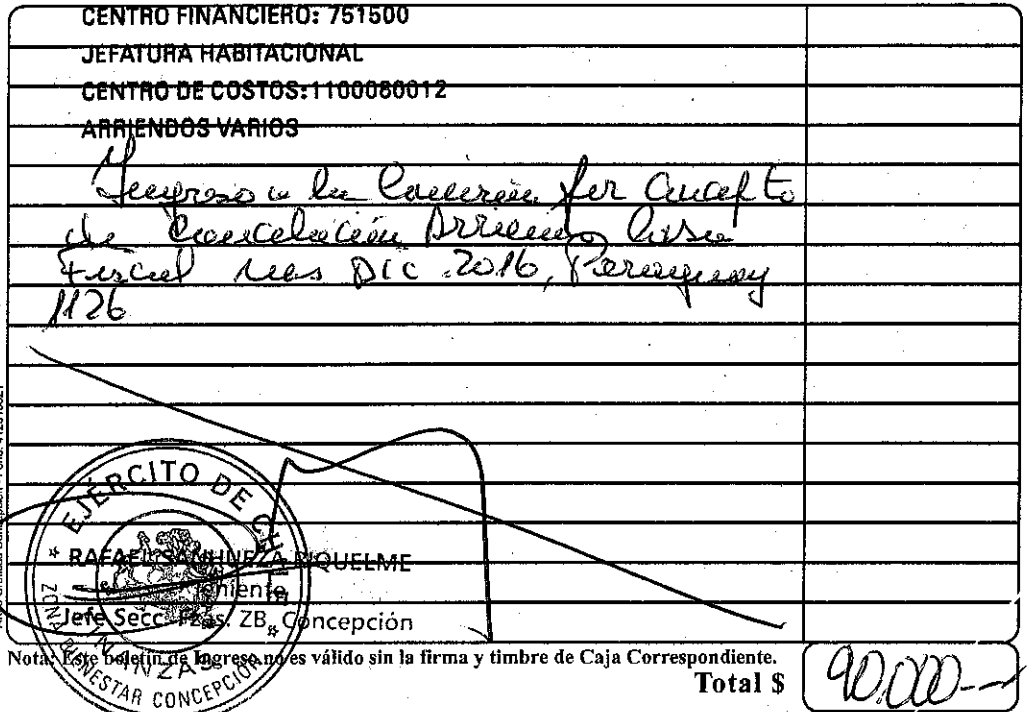 CENTRO FINANCIERO: 751500
JEFATURA HABITACIONAL
CENTRO DE COSTOS:1100080012
ARRIENDOS VARIOS
Ingreso a la Comisión por Concepto
de Cancelación Arriendo Casa
Fiscal mes DIC. 2016, Paraguay
1126
EJÉRCITO DE CHILE
RAFAEL SANHUEZA RIQUELME
Teniente
Jefe Secc. Fzas. ZB. Concepción
ZONA BIENESTAR CONCEPCIÓN
FINANZAS
Nota: Este boletín de Ingreso no es válido sin la firma y timbre de Caja Correspondiente.
Total $ 90.000--